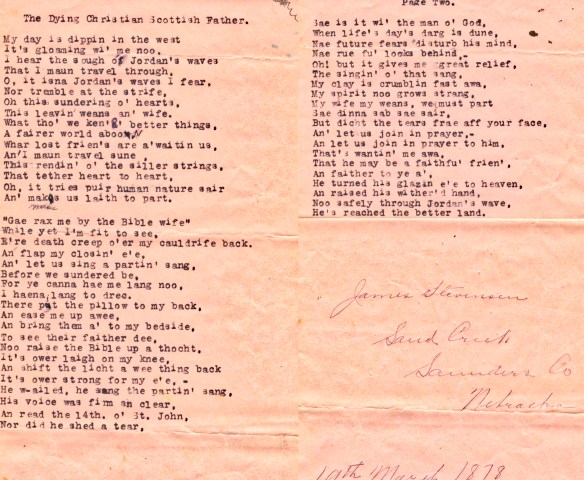 The Dying Christian Scottish Father.
My day is dippin in the west
It's gloaming wi' me noo.
I hear the sough of Jordan's waves
That I maun travel through.
O, it isna Jordan's waves I fear,
Nor tremble at the strife,
Oh this sundering o' hearts,
This leavin' weans an' wife.
What tho' we ken o' better things,
A fairer world aboon,
Whar lost frien's are a'waitin us,
An' I maun travel sune
This rendin' o' the siller strings,
That tether heart to heart,
Oh, it tries puir human nature sair
An' makes us laith to part.
"Gae rax me by the Bible wife"
While yet I'm fit to see,
E're death creep o'er my cauldrife back.
An flap my closin' e'e,
An' let us sing a partin' sang,
Before we sundered be,
For ye canna hae me lang noo,
I haena lang to dree.
There put the pillow to my back,
An ease me up awee,
An bring them a' to my bedside,
To see their faither dee,
Noo raise the Bible up a thocht,
It's ower laigh on my knee,
An shift the licht a wee thing back
It's ower strong for my e'e, -
He w-ailed, he sang the partin' sang,
His voice was firm an clear,
An read the 14th. o' St. John,
Nor did he shed a tear,
Page Two.
Sae is it wi' the man o' God,
When life's day's darg is dune,
Nae future fears disturb his mind,
Nae rue fu' looks behind.
Oh! but it gives me great relief,
The singin' o' that sang,
My clay is crumblin fast awa,
My spirit noo grows strang,
My wife my weans, we must part
Sae dinna sab sae sair,
But dicht the tears frae aff your face,
An' let us join in prayer,-
An let us join in prayer to him,
That's wantin' me awa,
That he may be a faithfu' frien',
An faither to ye a',
He turned his glazin e'e to heaven,
An raised his wither'd hand,
Noo safely through Jordan's wave,
He's reached the better land.
James Stevenson
Sand Creek
Saunders Co
Nebraska
19th March 1878